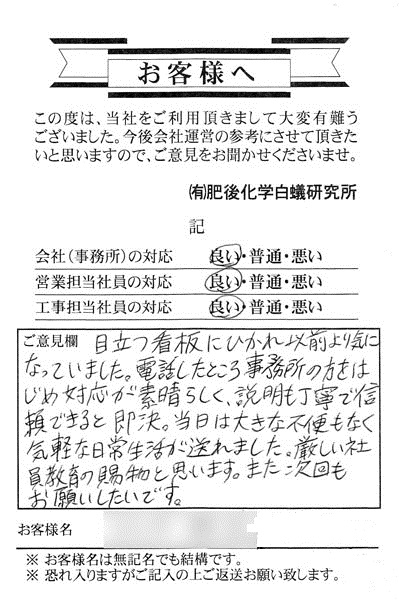 お客様へ
この度は、当社をご利用頂きまして大変有難う
ございました。今後会社運営の参考にさせて頂きた
いと思いますので、ご意見をお聞かせくださいませ。
㈲肥後化学白蟻研究所
記
会社（事務所）の対応 良い・普通・悪い
営業担当社員の対応 良い・普通・悪い
工事担当社員の対応 良い・普通・悪い
ご意見欄 目立つ看板にひかれ以前より気に
なっていました。電話したところ事務所の方をは
じめ対応が素晴らしく、説明も丁寧で信
頼できると即決。当日は大きな不便もなく
気軽な日常生活が送れました。厳しい社
員教育の賜物と思います。また次回も
お願いしたいです。
お客様名
※ お客様名は無記名でも結構です。
※ 恐れ入りますがご記入の上ご返送お願い致します。